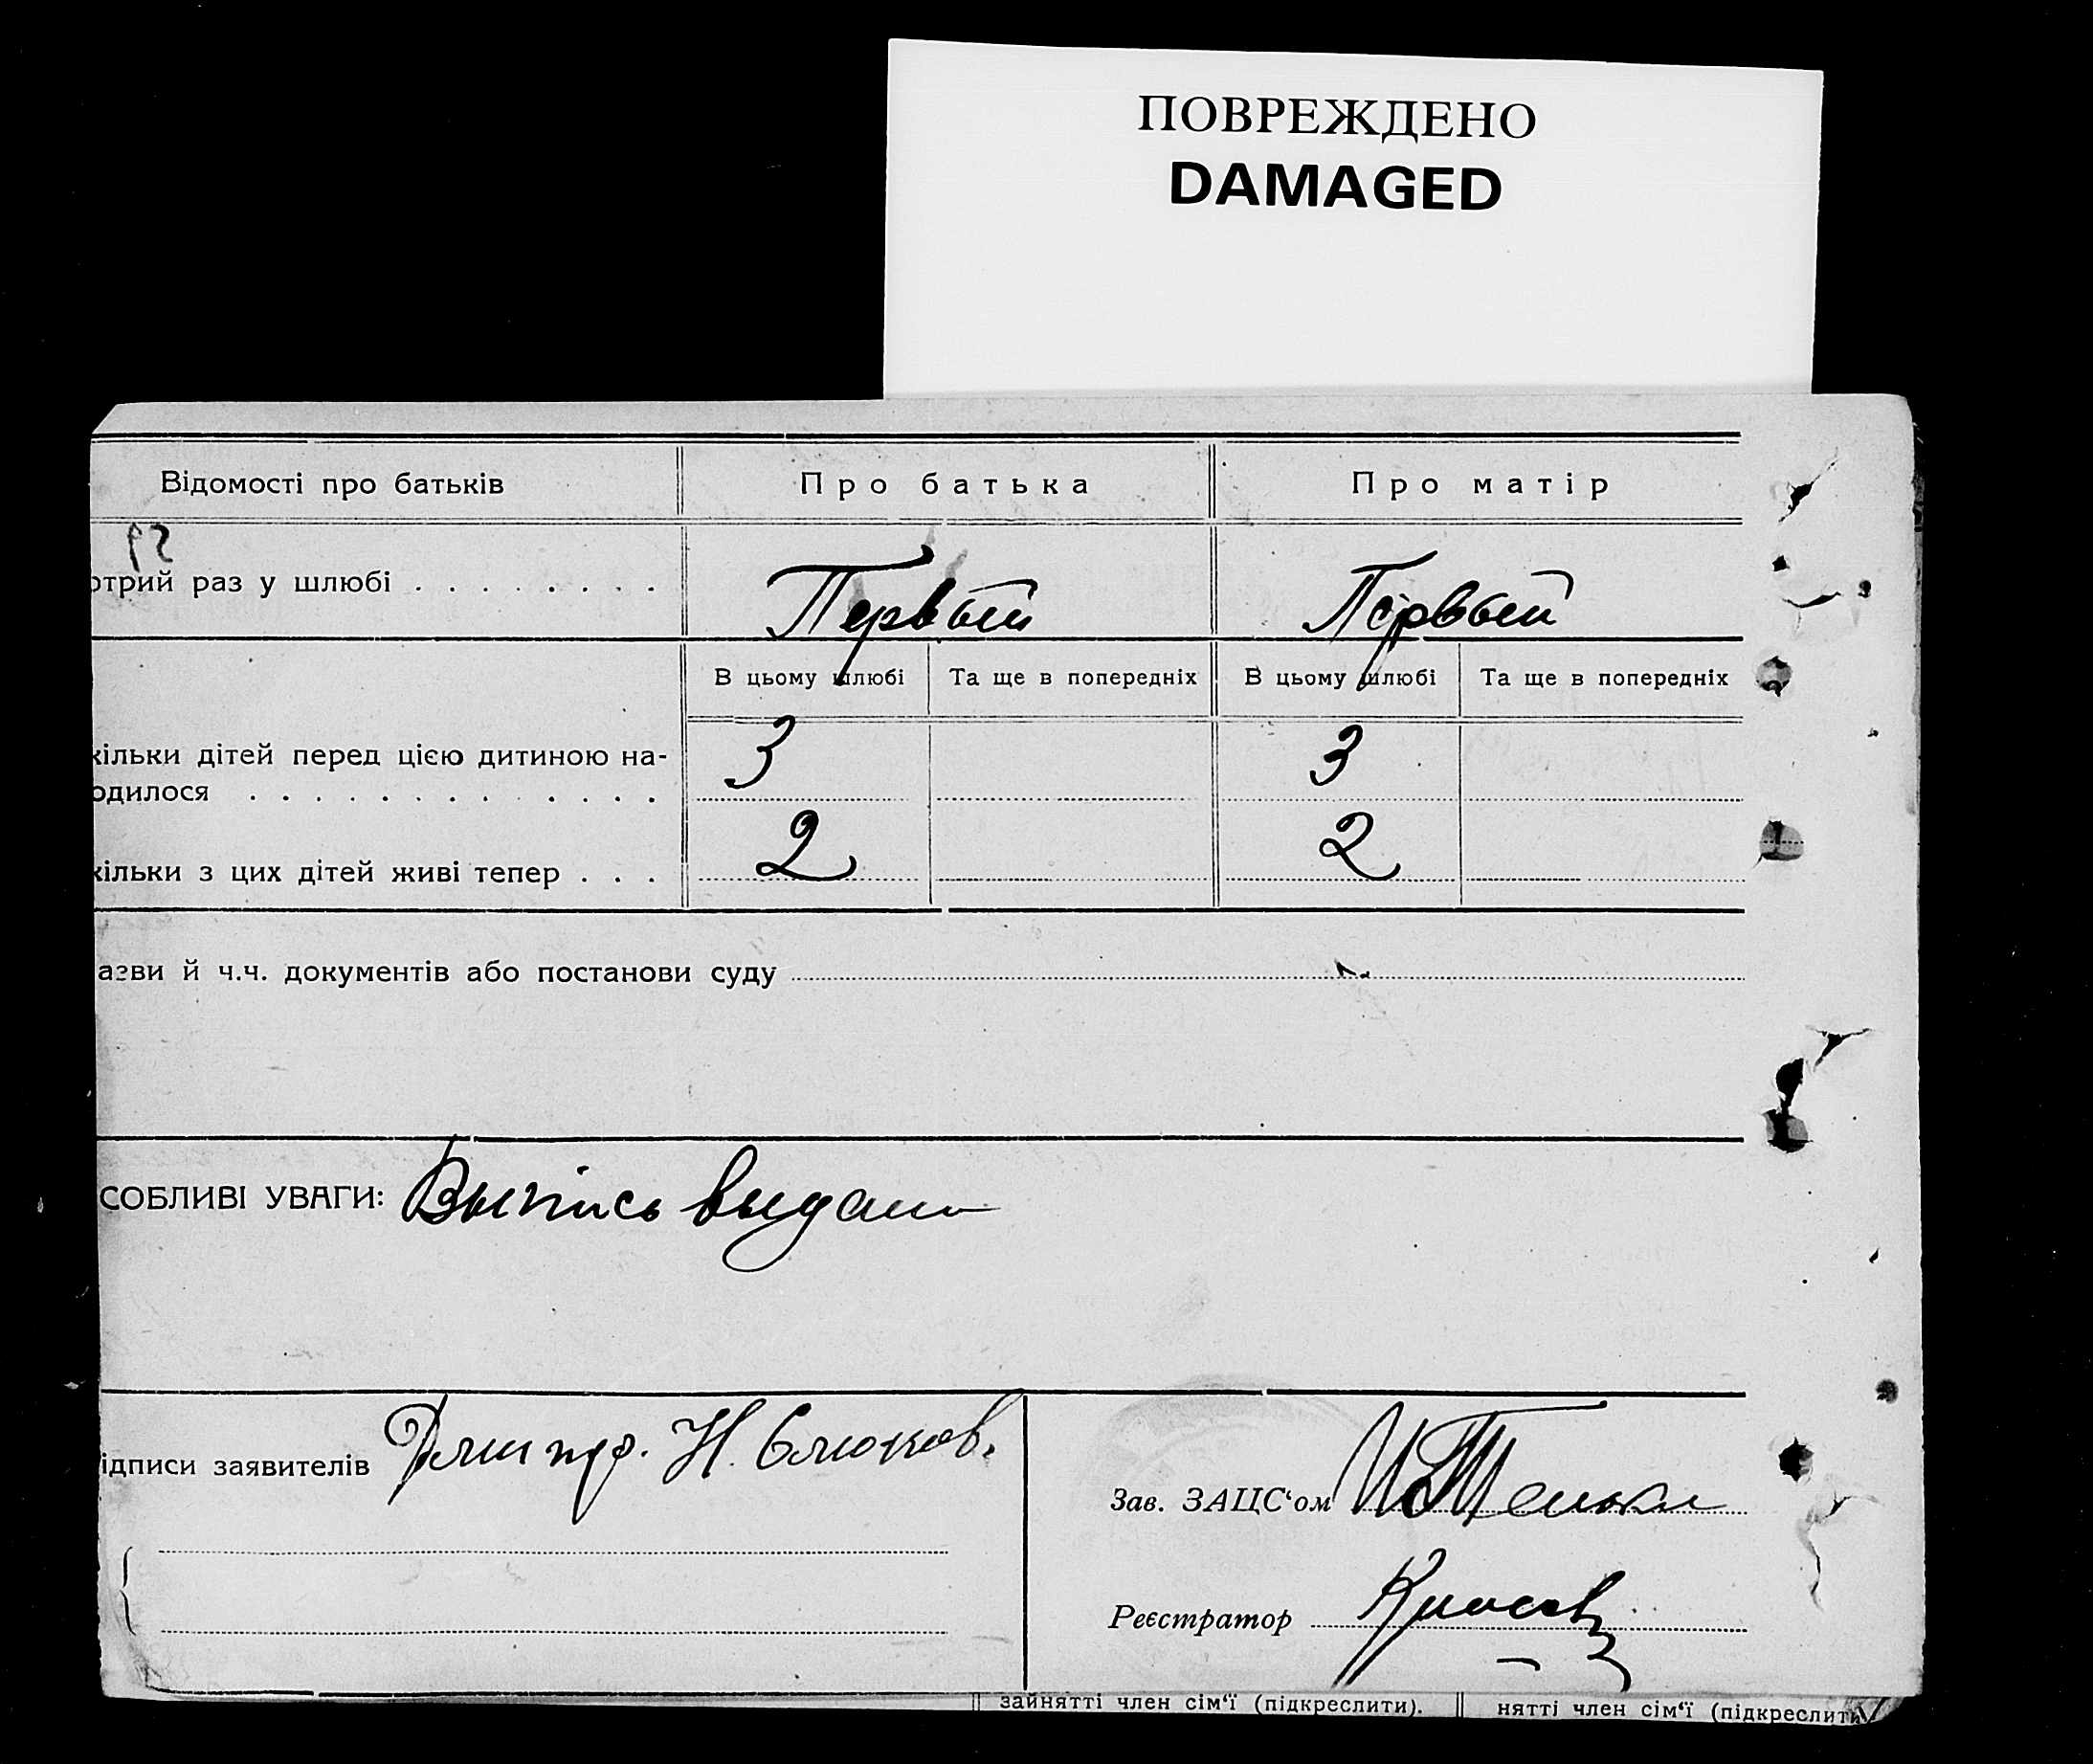 ПОВРЕЖДЕНО
DAMAGED
Відомості про батьків
Про батька
Про матір
59
отрий раз у шлюбі . . . . . . . .
Первый
Первый
В цьому шлюбі
Та ще в попередніх
В цьому шлюбі
Та ще в попередніх
кільки дітей перед цією дитиною на-
одилося . . . . . . . . . . . . .
3
3
кільки з цих дітей живі тепер . . .
2
2
азви й ч.ч. документів або постанови суду
СОБЛИВІ УВАГИ: Выпись выдана
ідписи заявителів Н.
Зав. ЗАЦС‘ом
Реєстратор
зайнятті член сім‘ї (підкреслити).
нятті член сім‘ї (підкреслити